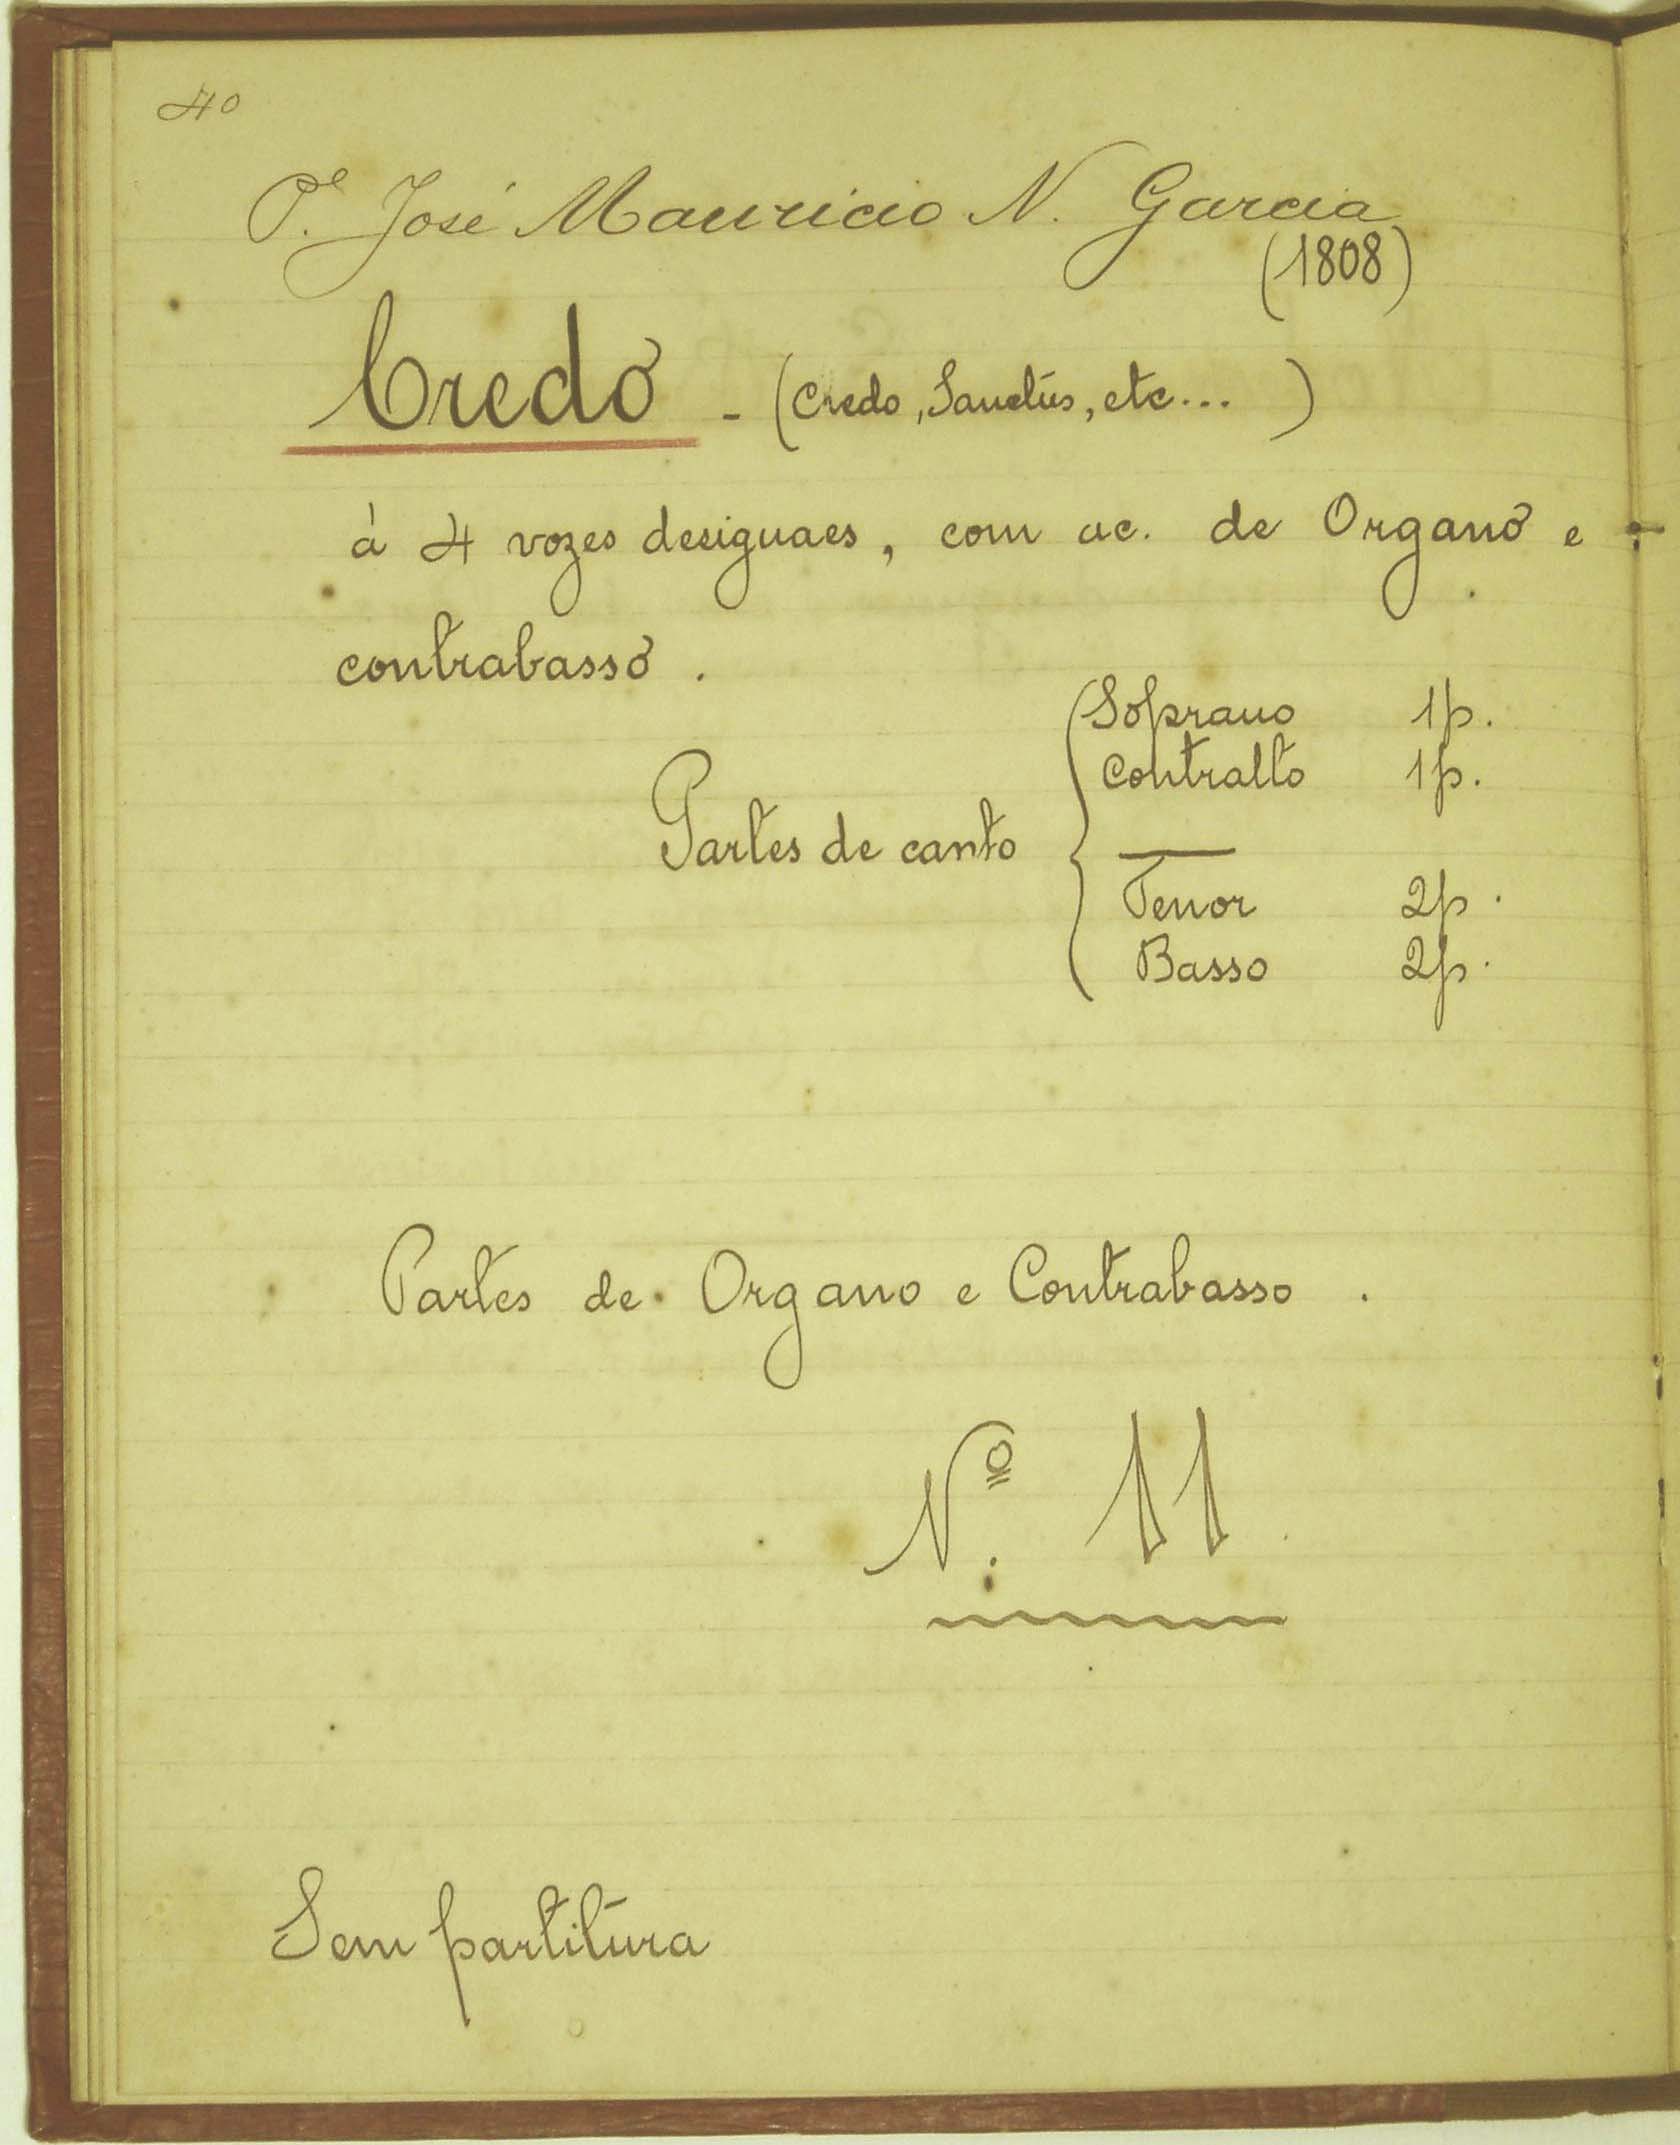 40
Pe. José Mauricio N. Garcia
(1808)
Credo - (Credo, Sanctus, etc... )
à 4 vozes desiguaes, com ac. de Organo e
contrabasso.
Partes de canto
Soprano 1p.
Contralto 1p.
Tenor 2p.
Basso 2p.
Partes de Organo e Contrabasso.
Nº. 11
Sem partitura